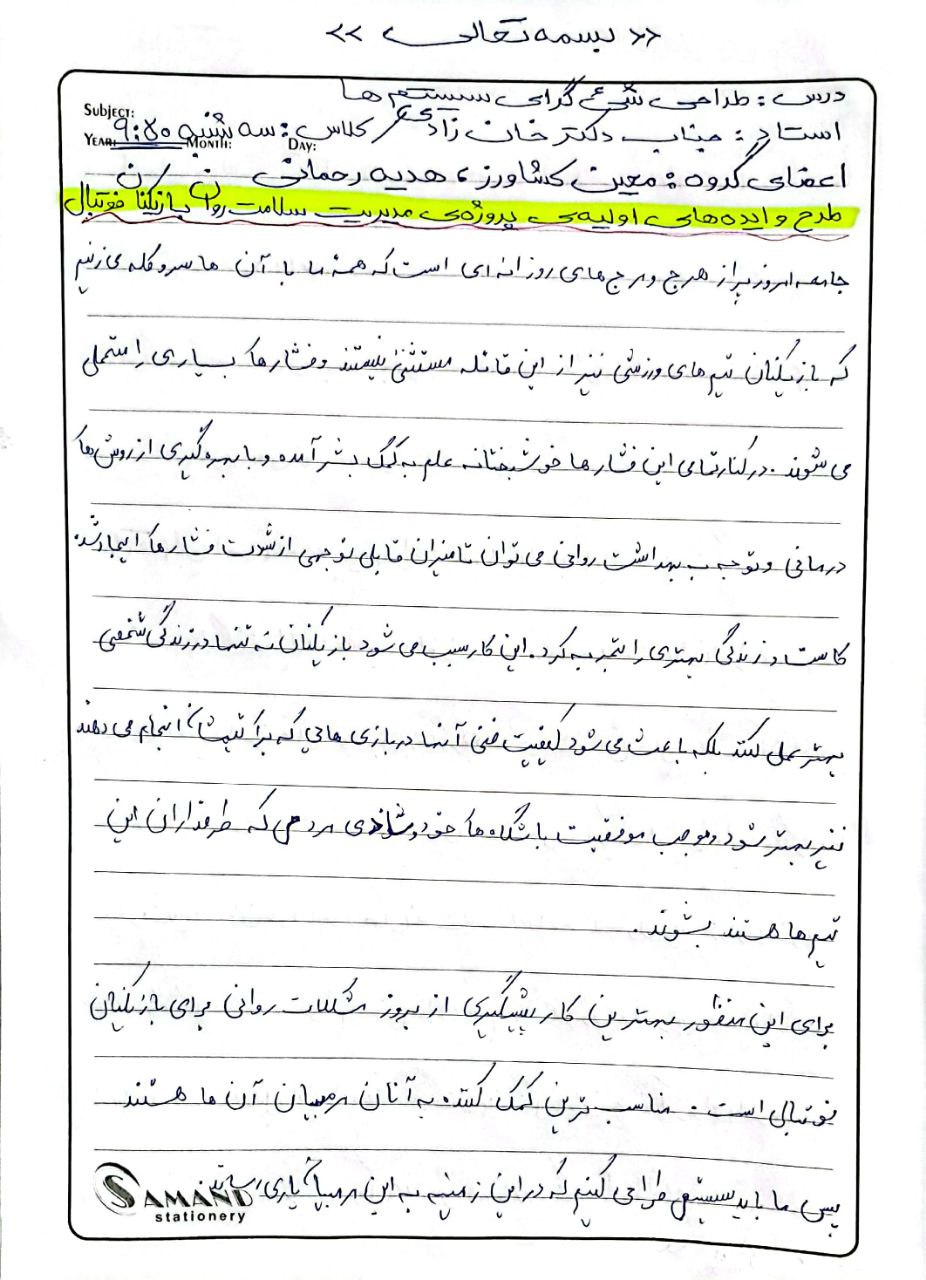 << بسمه تعالی >>
درس: طراحی شئ گرای سیستم ها
Subject:
استاد: جناب دکتر خان زادی / کلاس: سه شنبه ۹:۴۵
YEAR: MONTH: DAY:
اعضای گروه: معین کشاورز، هدیه رحمانی
طرح و ایده های اولیه ی پروژه ی مدیریت سلامت روان بازیکنان فوتبال
جامعه امروز پر از هرج و مرج های روزانه ای است که همهٔ ما با آن ها سروکله می زنیم
که بازیکنان تیم های ورزشی نیز از این قائله مستثنی نیستند و فشارها بسیاری را متحمل
می شوند. در کنار تمامی این فشارها خوشبختانه علم به کمک بشر آمده و با بهره گیری از روش ها
درمانی و توجه به بهداشت روانی می توان تا میزان قابل توجهی از شدت فشارها ایجاد شده
کاست و زندگی بهتری را تجربه کرد. این کار سبب می شود بازیکنان نه تنها در زندگی شخصی
بهتر عمل کنند بلکه باعث می شود کیفیت فنی آنها در بازی هایی که برا تیمشان انجام می دهند
نیز بهتر شود و موجب موفقیت باشگاه ها خود و شادی مردمی که طرفداران این
تیم ها هستند بشوند.
برای این منظور بهترین کار پیشگیری از بروز مشکلات روانی برای بازیکنان
فوتبالی است. مناسب ترین کمک کننده به آنان مربیان آن ها هستند
پس ما باید سیستمی طراحی کنیم که در این زمینه به این مربیان یاری رساند.
SAMAND
stationery